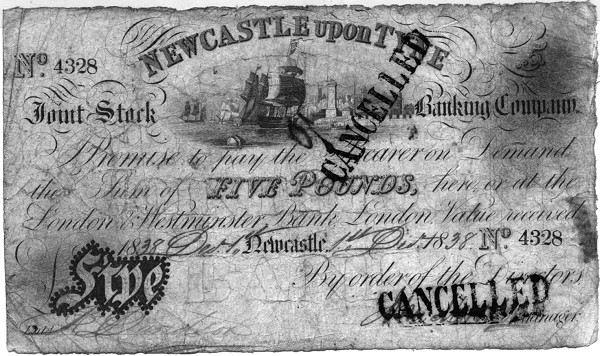 NEWCASTLE upon TYNE
Nº 4328
Joint Stock Banking Company.
CANCELLED
I Promise to pay the Bearer on Demand
the Sum of FIVE POUNDS, here or at the
London & Westminster Bank London Value received
1838 Dec 1st Newcastle. 1st Dec 1838 Nº 4328
Five
By order of the Directors
CANCELLED
Manager.